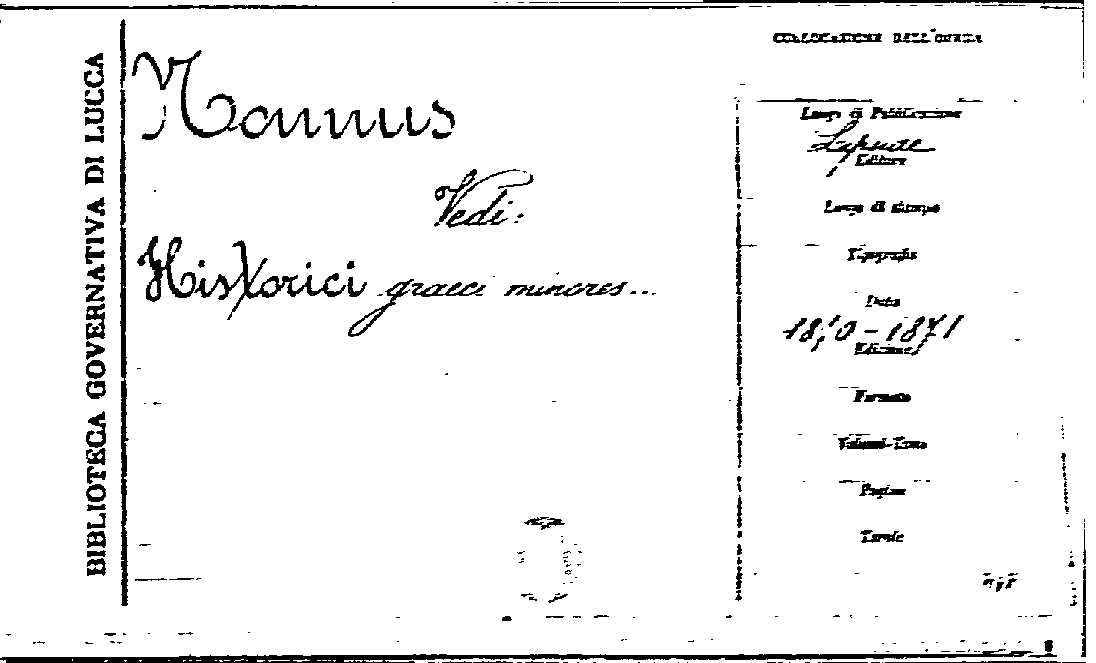 BIBLIOTECA GOVERNATIVA DI LUCCA
Nonnus
Vedi:
Historici graeci minores...
COLLOCAZIONE DELL'OPERA
Luogo di Pubblicazione
Lipsiae
Editore
Luogo di stampa
Tipografia
Data
1870-1871
Edizione
Formato
Volumi-Tomo
Pagine
Tavole